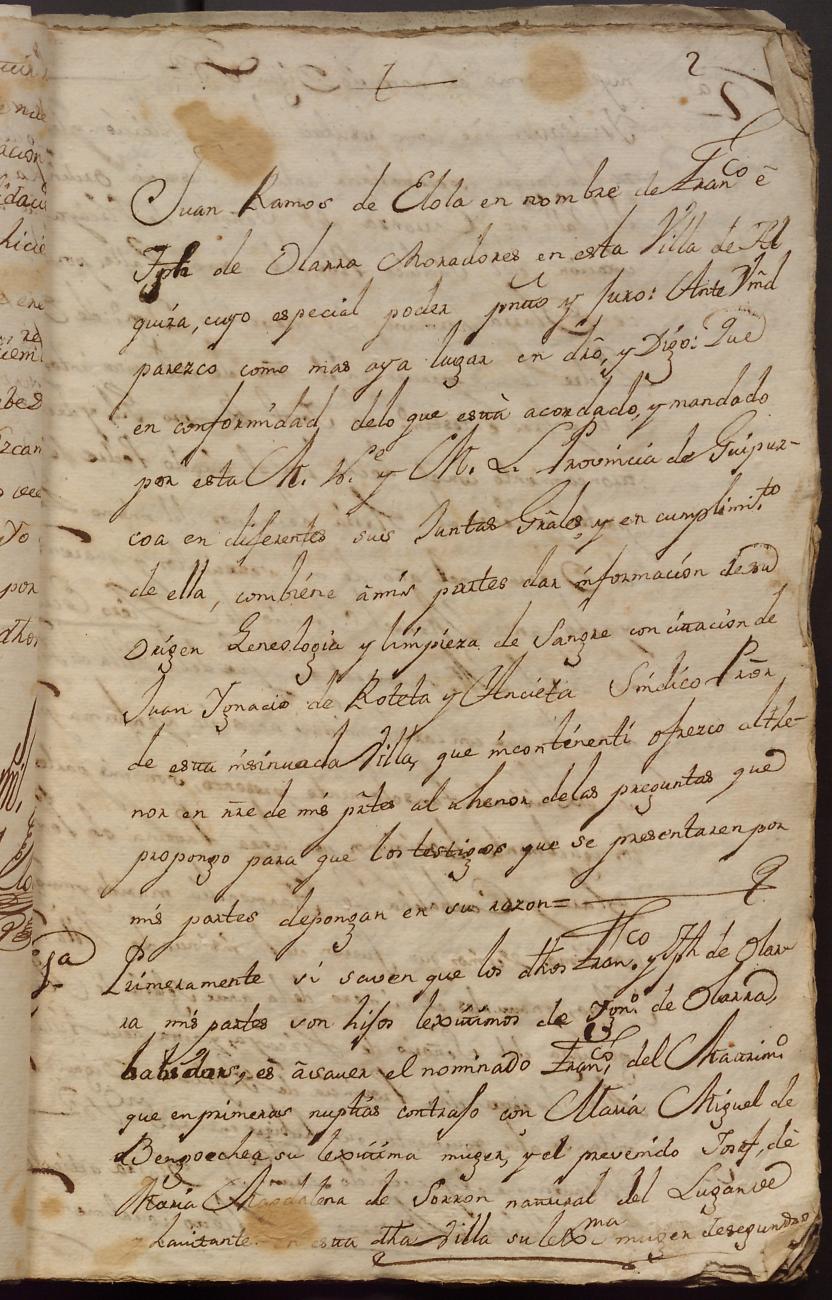 2
Juan Ramos de Elola en nombre de Franco. è
Jph de Olarra Moradores en esta Villa de Al
quiza, cuyo especial poder pntto y Juro: Ante Vmd
parezco como mas aya lugar en dro, y Digo: Que
en conformidad delo que està acordado, y mandado
por esta M. N.e y M. L. Provincia de Guipuz-
coa en diferentes sus Juntas Grales, y en cumplimi.to
de ella, combiene à mis partes dar informacion de su
Origen Genelogia y limpieza de Sangre con citacion de
Juan Ygnacio de Roteta y Ancieta Sindico Pror
de esta insinuada Villa, que incontenenti ofrezco al the-
nor en nre de mis prtes al thenor delas preguntas que
propongo para que los testigos que se presentaren por
mis partes depongan en su razon=
1a Primeramente si saven que los dhos Franco. y Jph de Olar-
ra mis partes son hijos lexitimos de Jono. de Olarra,
habidos, es à saver el nominado Franco. del Matrimo
que en primeras nuptias contrajo con Maria Miguel de
Bengoechea su lexitima muger, y el prevenido Josef, de
Maria Magdalena de Sorron natural del Lugar de
havitante en esta dha Villa su lexma muger de segundas